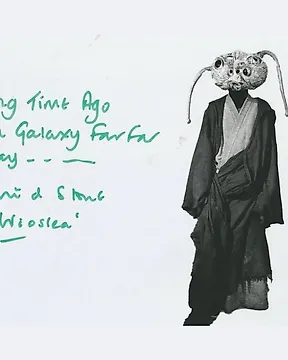 ng Time Ago
Galaxy Far Far
ay - - —
Stone
Wioslea'